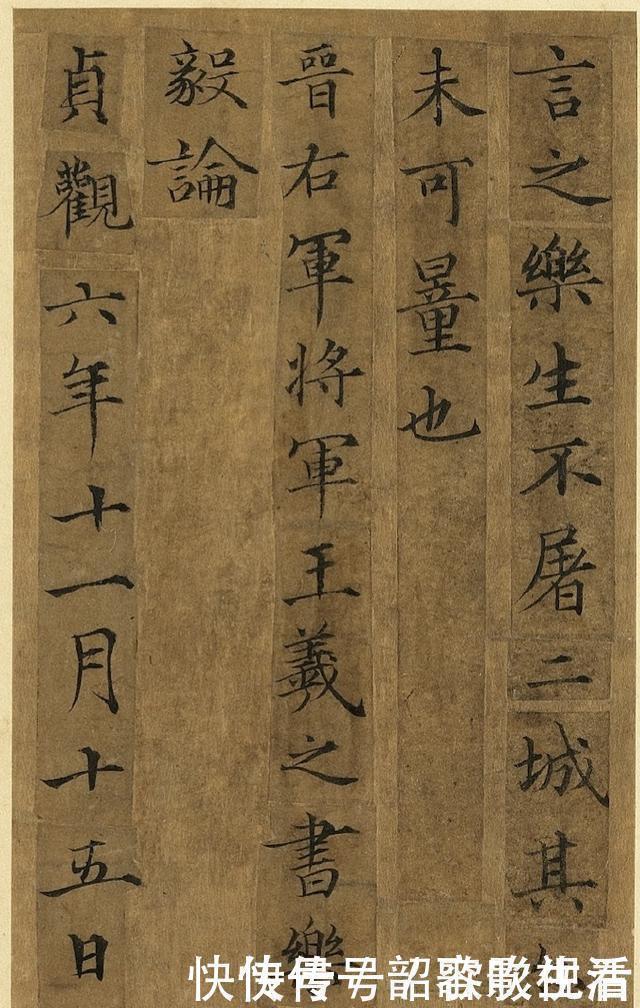 言之樂生不屠二城其
未可量也
晉右軍將軍王羲之書樂
毅論
貞觀六年十一月十五日